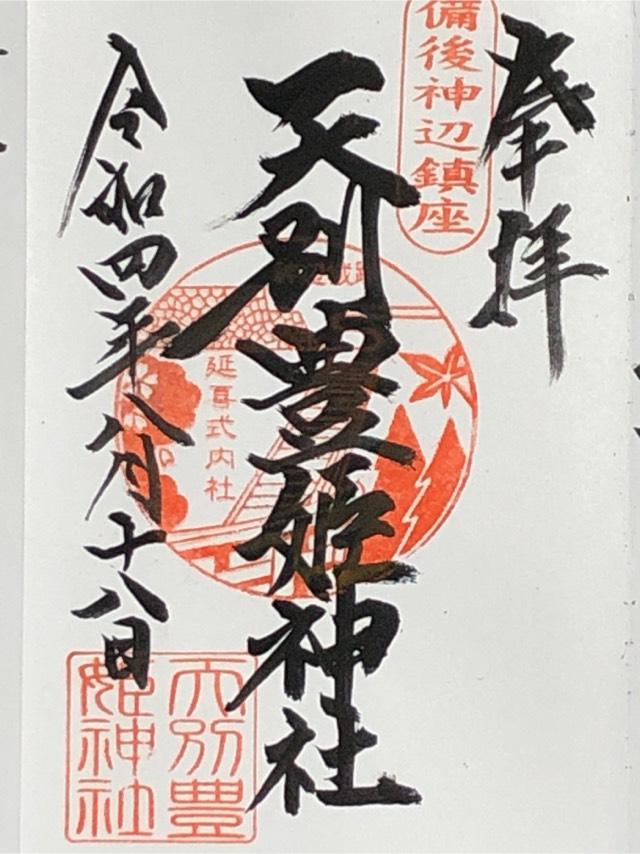 奉拝
備後神辺鎮座
天別豊姫神社
延喜式内社
令和四年八月十八日
天別豊
姫神社